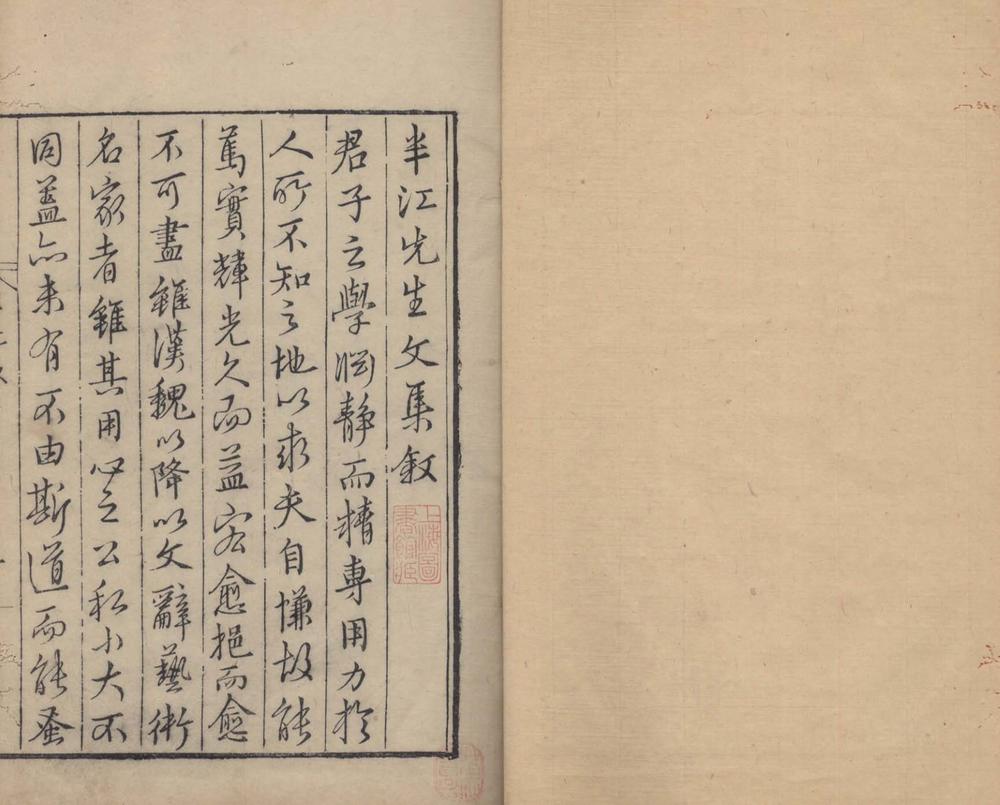 半江先生文集敘
上海圖書館藏
君子之學淵静而精專用力於
人所不知之地以求夫自慊故能
篤實輝光久而益宏愈挹而愈
不可盡雖漢魏以降以文辭藝術
名家者雖其用心之公私小大不
同蓋亦未有不由斯道而能蚤